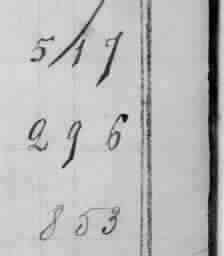 517
296
853